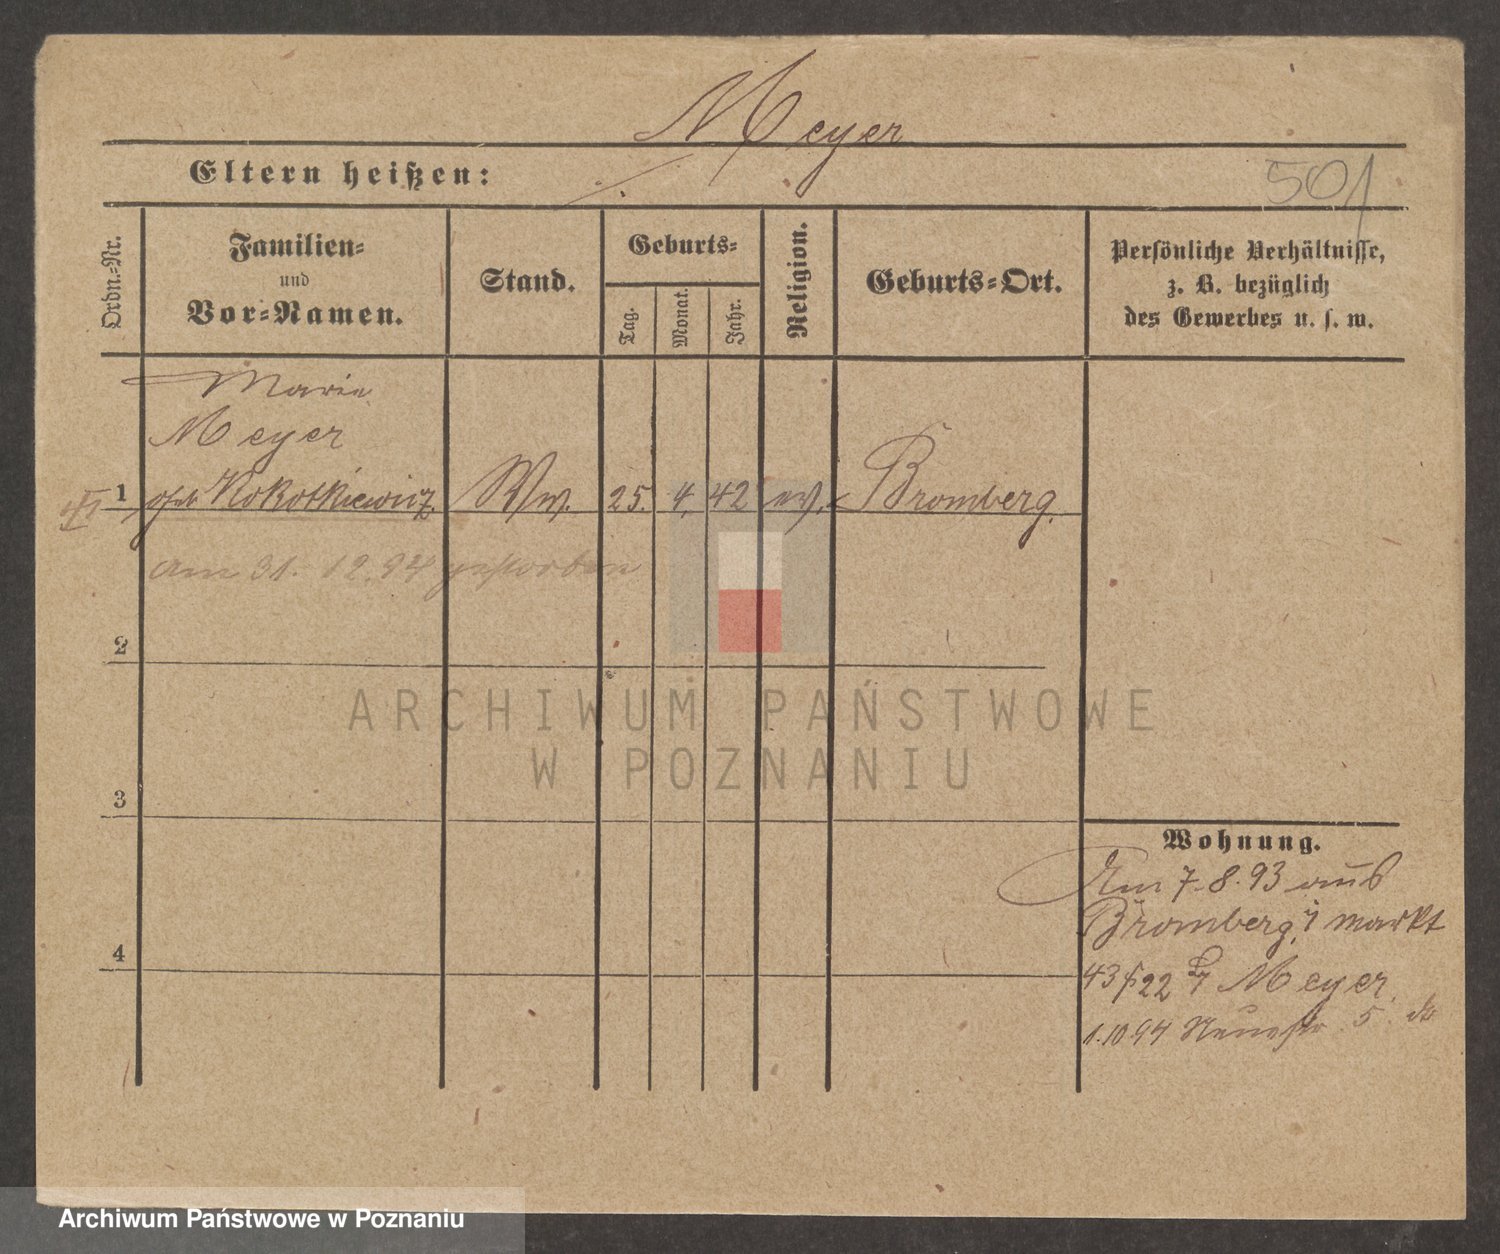 Meyer
Eltern heißen:
501
Ordn.-Nr.
Familien-
und
Vor-Namen.
Stand.
Geburts-
Tag.
Monat.
Jahr.
Religion.
Geburts-Ort.
Persönliche Verhältnisse,
z. B. bezüglich
des Gewerbes u. s. w.
Marie
Meyer
1 geb Kokotkiewicz. Ww. 25. 4. 42 ev. Bromberg.
am 31. 12. 94 gestorben
2
ARCHIWUM PAŃSTWOWE
W POZNANIU
3
Wohnung.
Am 7. 8. 93 aus
Bromberg, markt
4
43/22 Meyer
1.10.94 Neuestr 5.
Archiwum Państwowe w Poznaniu